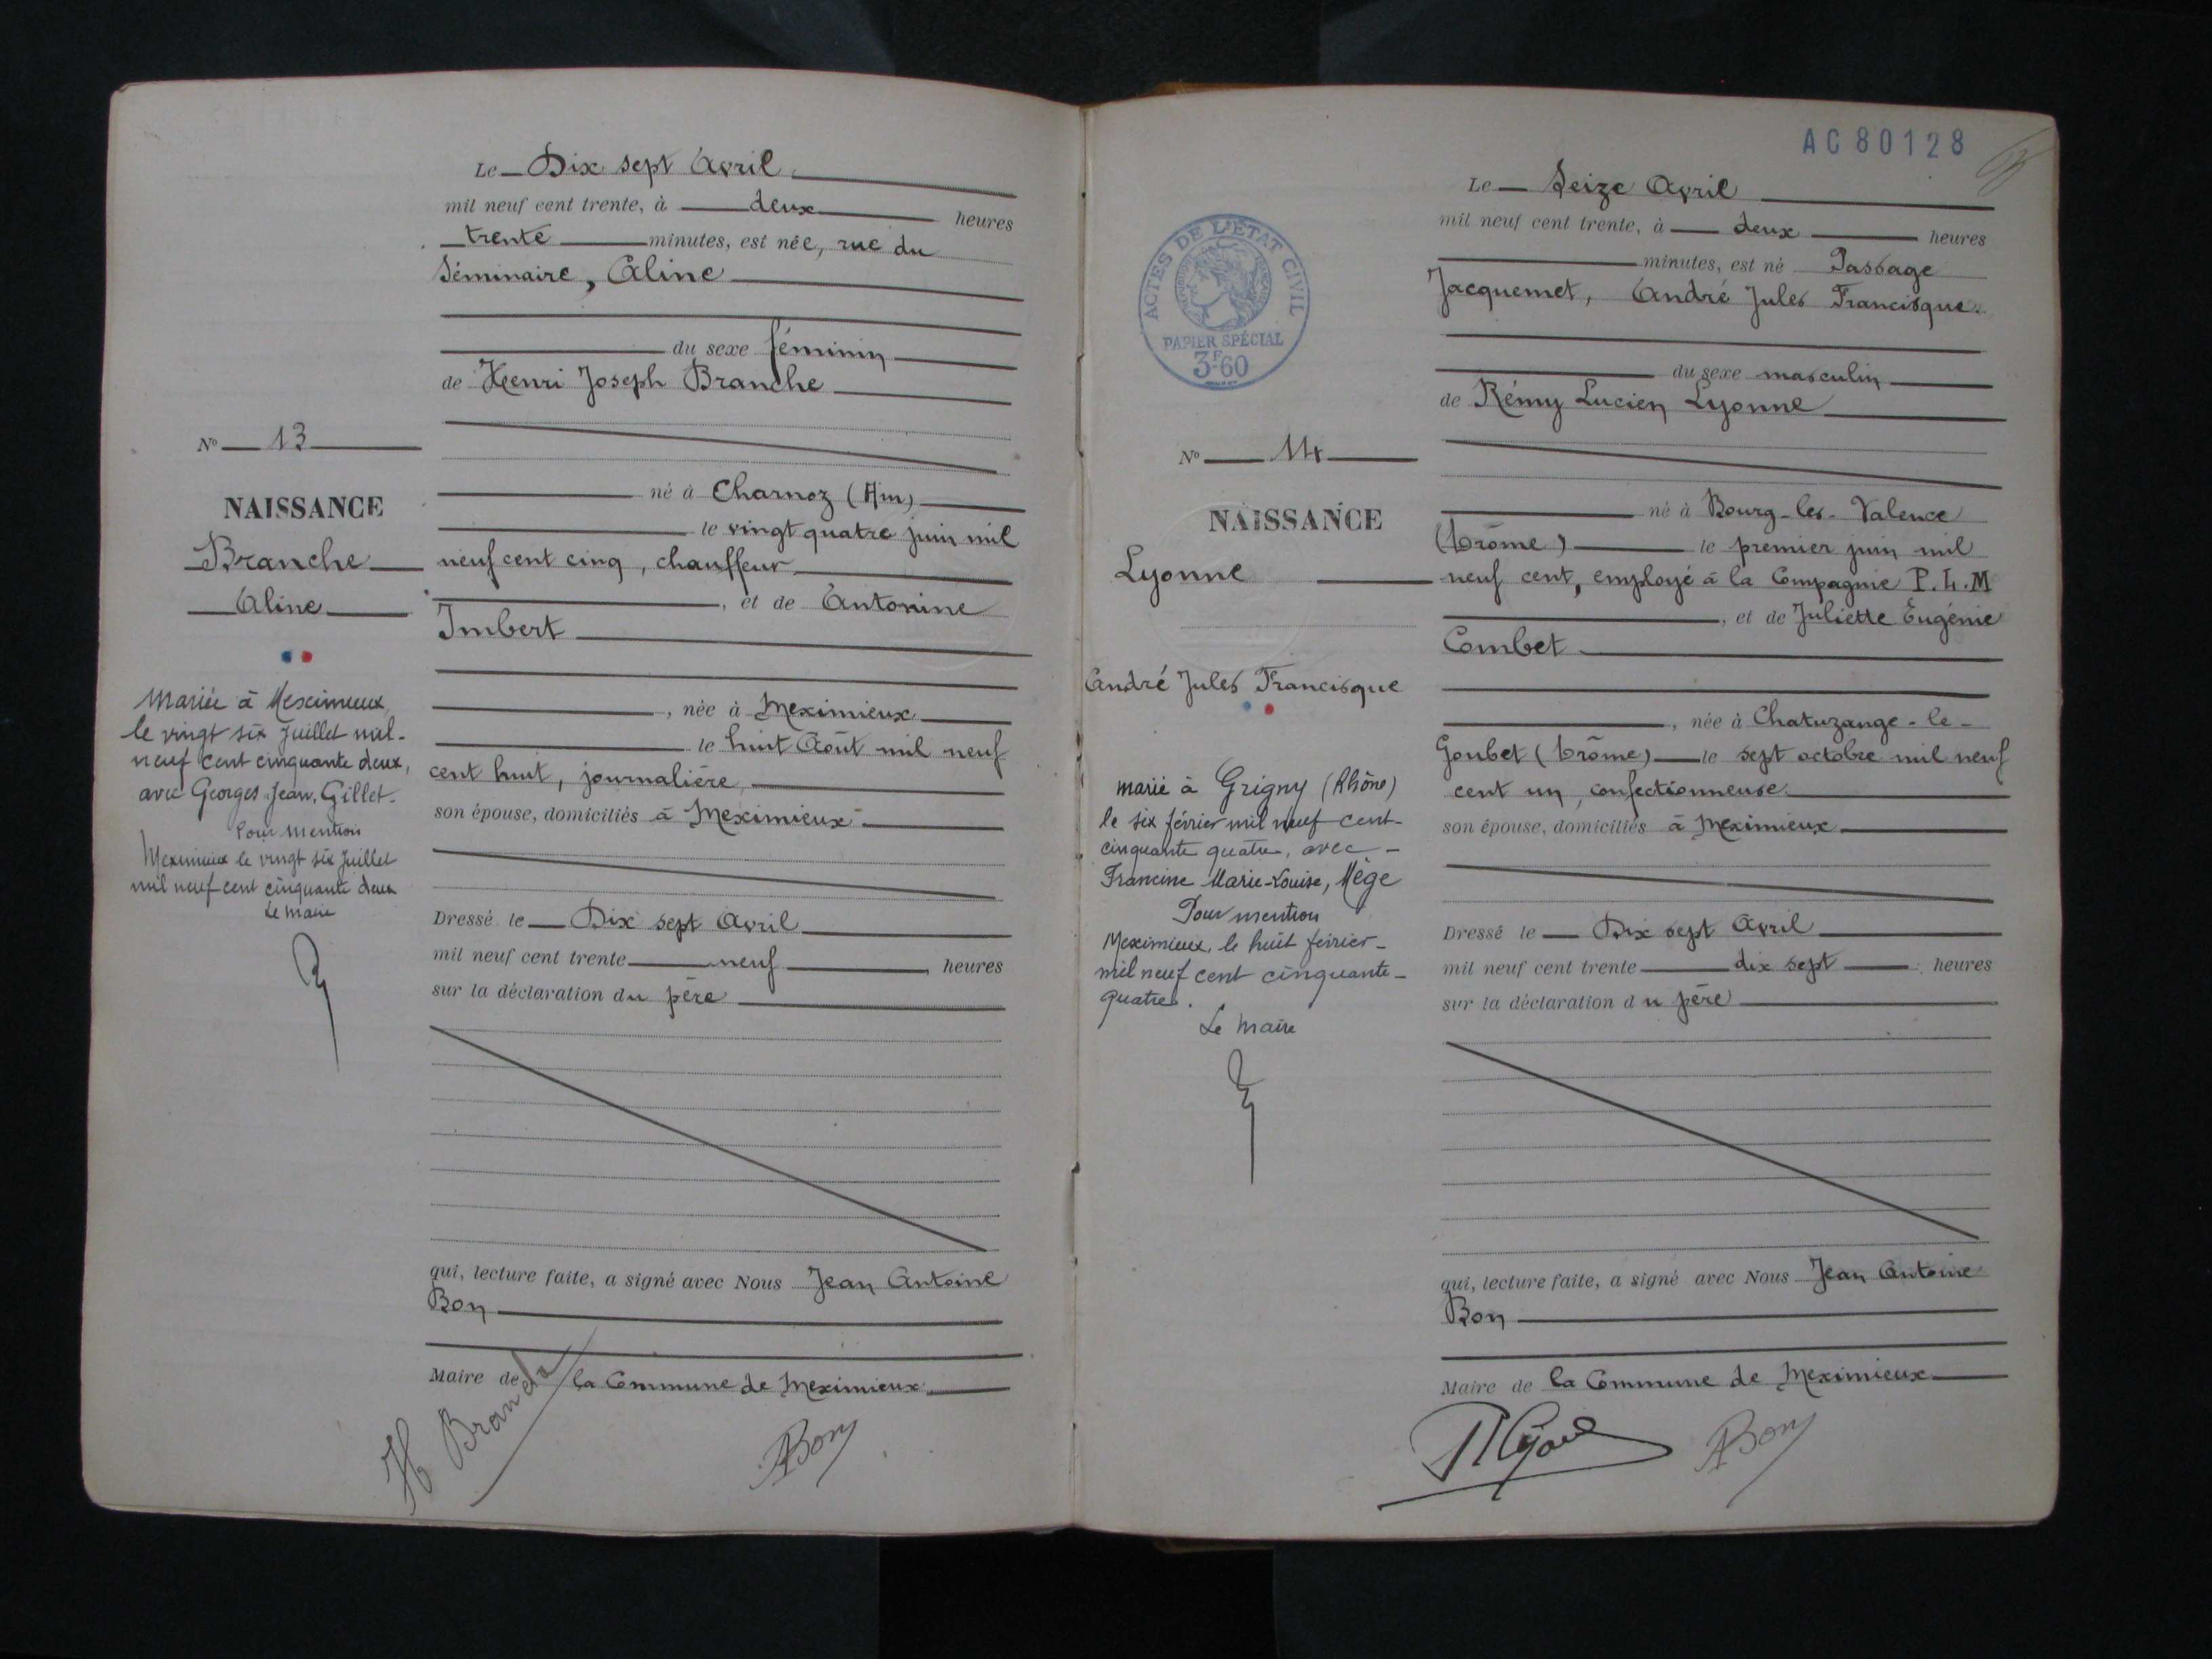 Le Dix sept Avril
mil neuf cent trente, à deux heures
trente minutes, est née, rue du
Séminaire, Aline
du sexe féminin
de Henri Joseph Branche
né à Charnoz (Ain)
le vingt quatre juin mil
neuf cent cinq, chauffeur
, et de Antonine
Imbert
, née à Meximieux
le huit Août mil neuf
cent huit, journalière
son épouse, domiciliés à Meximieux
Dressé le Dix sept Avril
mil neuf cent trente neuf heures
sur la déclaration du père
qui, lecture faite, a signé avec Nous Jean Antoine
Bon
Maire de la Commune de Meximieux
H Branche
ABon
No 13
NAISSANCE
Branche
Aline
Mariée à Meximieux
le vingt six Juillet mil-
neuf cent cinquante deux,
avec Georges Jean, Gillet.
Pour mention
Meximieux le vingt six Juillet
mil neuf cent cinquante deux
Le maire
AC 80128
ACTES DE L'ÉTAT CIVIL
PAPIER SPÉCIAL
3F60
Le Seize Avril
mil neuf cent trente, à deux heures
minutes, est né Passage
Jacquemet, André Jules Francisque
du sexe masculin
de Rémy Lucien Lyonne
né à Bourg-les-Valence
(Drôme) le premier juin mil
neuf cent, employé à la Compagnie P.L.M
, et de Juliette Eugénie
Combet
, née à Chatuzange-le-
Goubet (Drôme) le sept octobre mil neuf
cent un, confectionneuse
son épouse, domiciliés à Meximieux
Dressé le Dix sept Avril
mil neuf cent trente dix sept heures
sur la déclaration du père
qui, lecture faite, a signé avec Nous Jean Antoine
Bon
Maire de la Commune de Meximieux
ABon
No 14
NAISSANCE
Lyonne
André Jules Francisque
marié à Grigny (Rhône)
le six février mil neuf cent-
cinquante quatre, avec-
Francine Marie-Louise, Mège
Pour mention
Meximieux, le huit février-
mil neuf cent cinquante-
quatre.
Le Maire